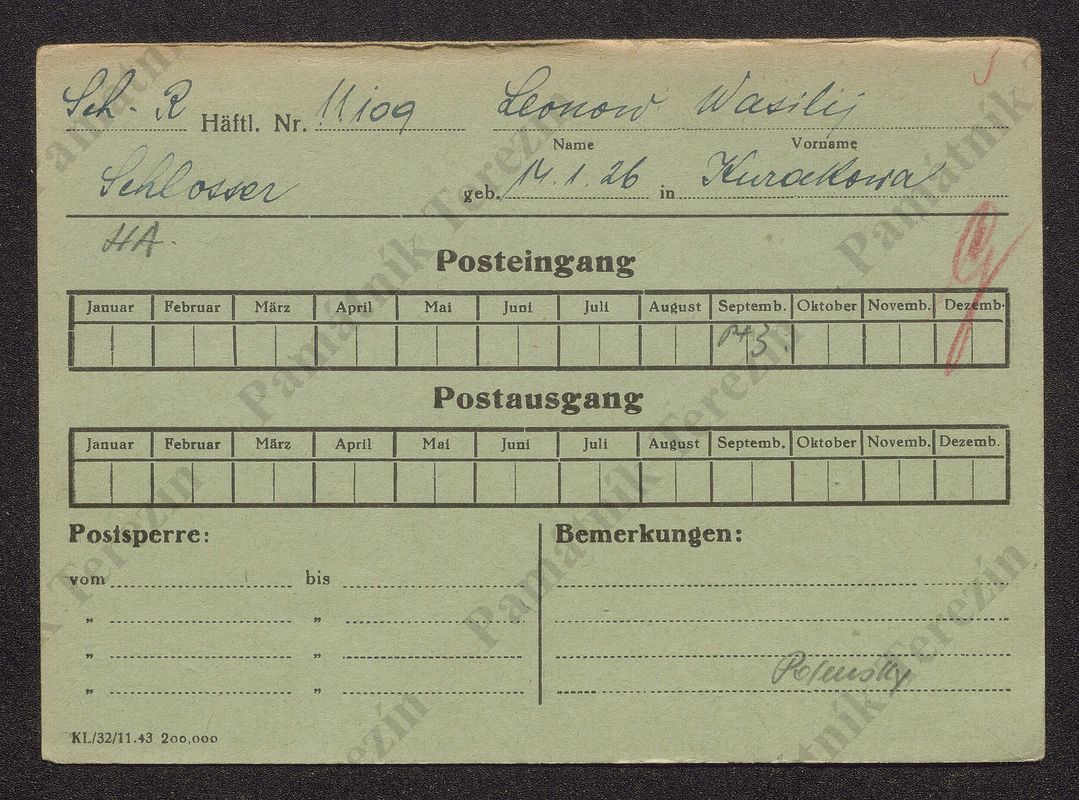 Sch-R Häftl. Nr. 11109 Leonow Wasilij
Name Vorname
Schlosser geb. 14.1.26 in Kurakowa
HA.
Posteingang
Januar Februar März April Mai Juni Juli August Septemb. Oktober Novemb. Dezemb.
Postausgang
Januar Februar März April Mai Juni Juli August Septemb. Oktober Novemb. Dezemb.
Postsperre: Bemerkungen:
vom bis
„ „
„ „
„ „
KL/32/11.43 200,000
Památník Terezín